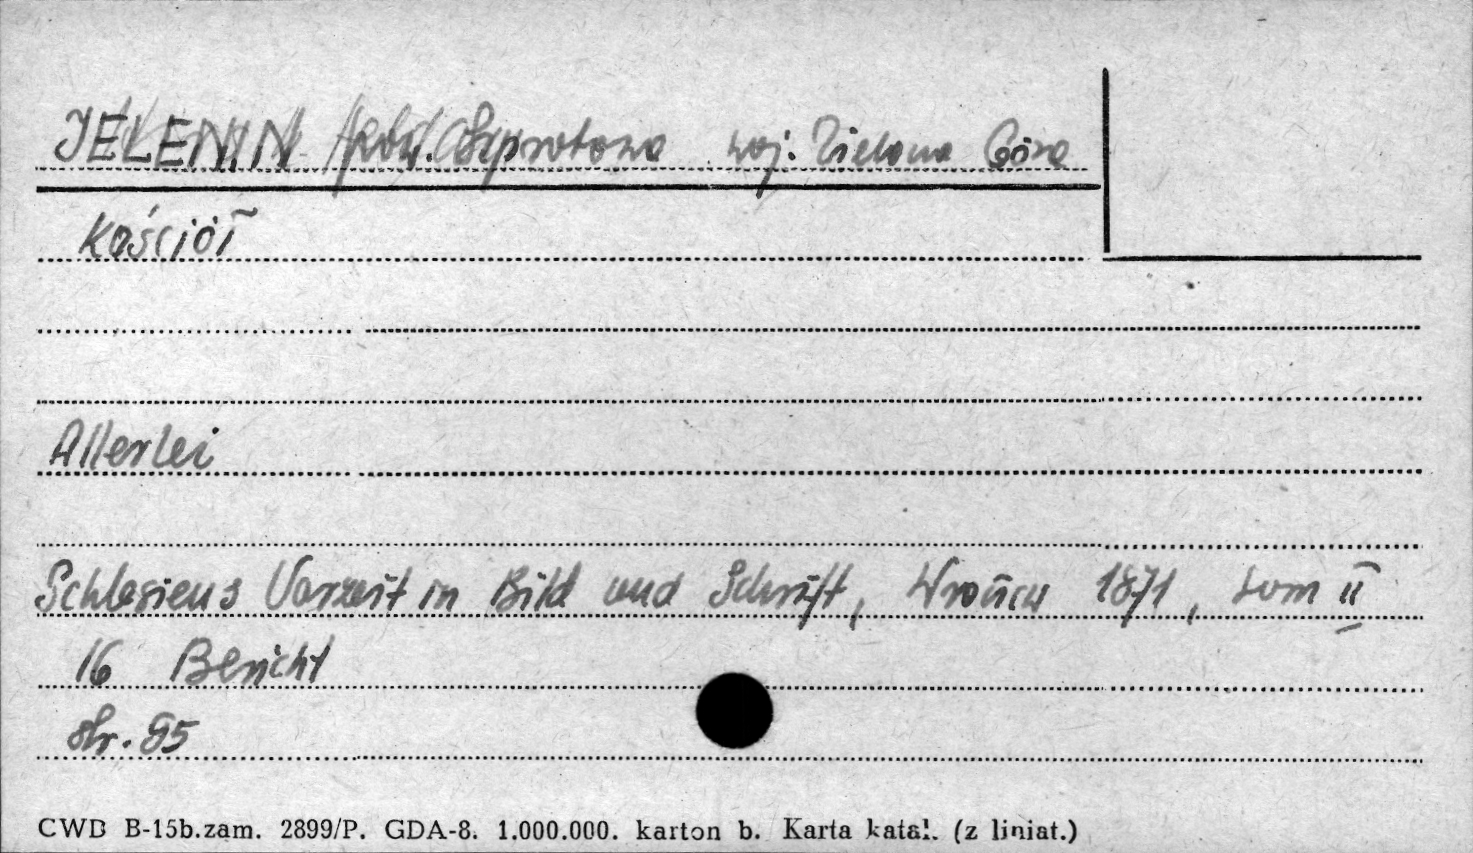 JELENIN pow. Szprotawa woj. Zielona Góra
Kościół
Allerlei
Schlesiens Vorzeit in Bild und Schrift, Wrocław 1871, tom II
16 Bericht
str. 95
CWD B-15b.zam. 2899/P. GDA-8. 1.000.000. karton b. Karta katal. (z liniat.)